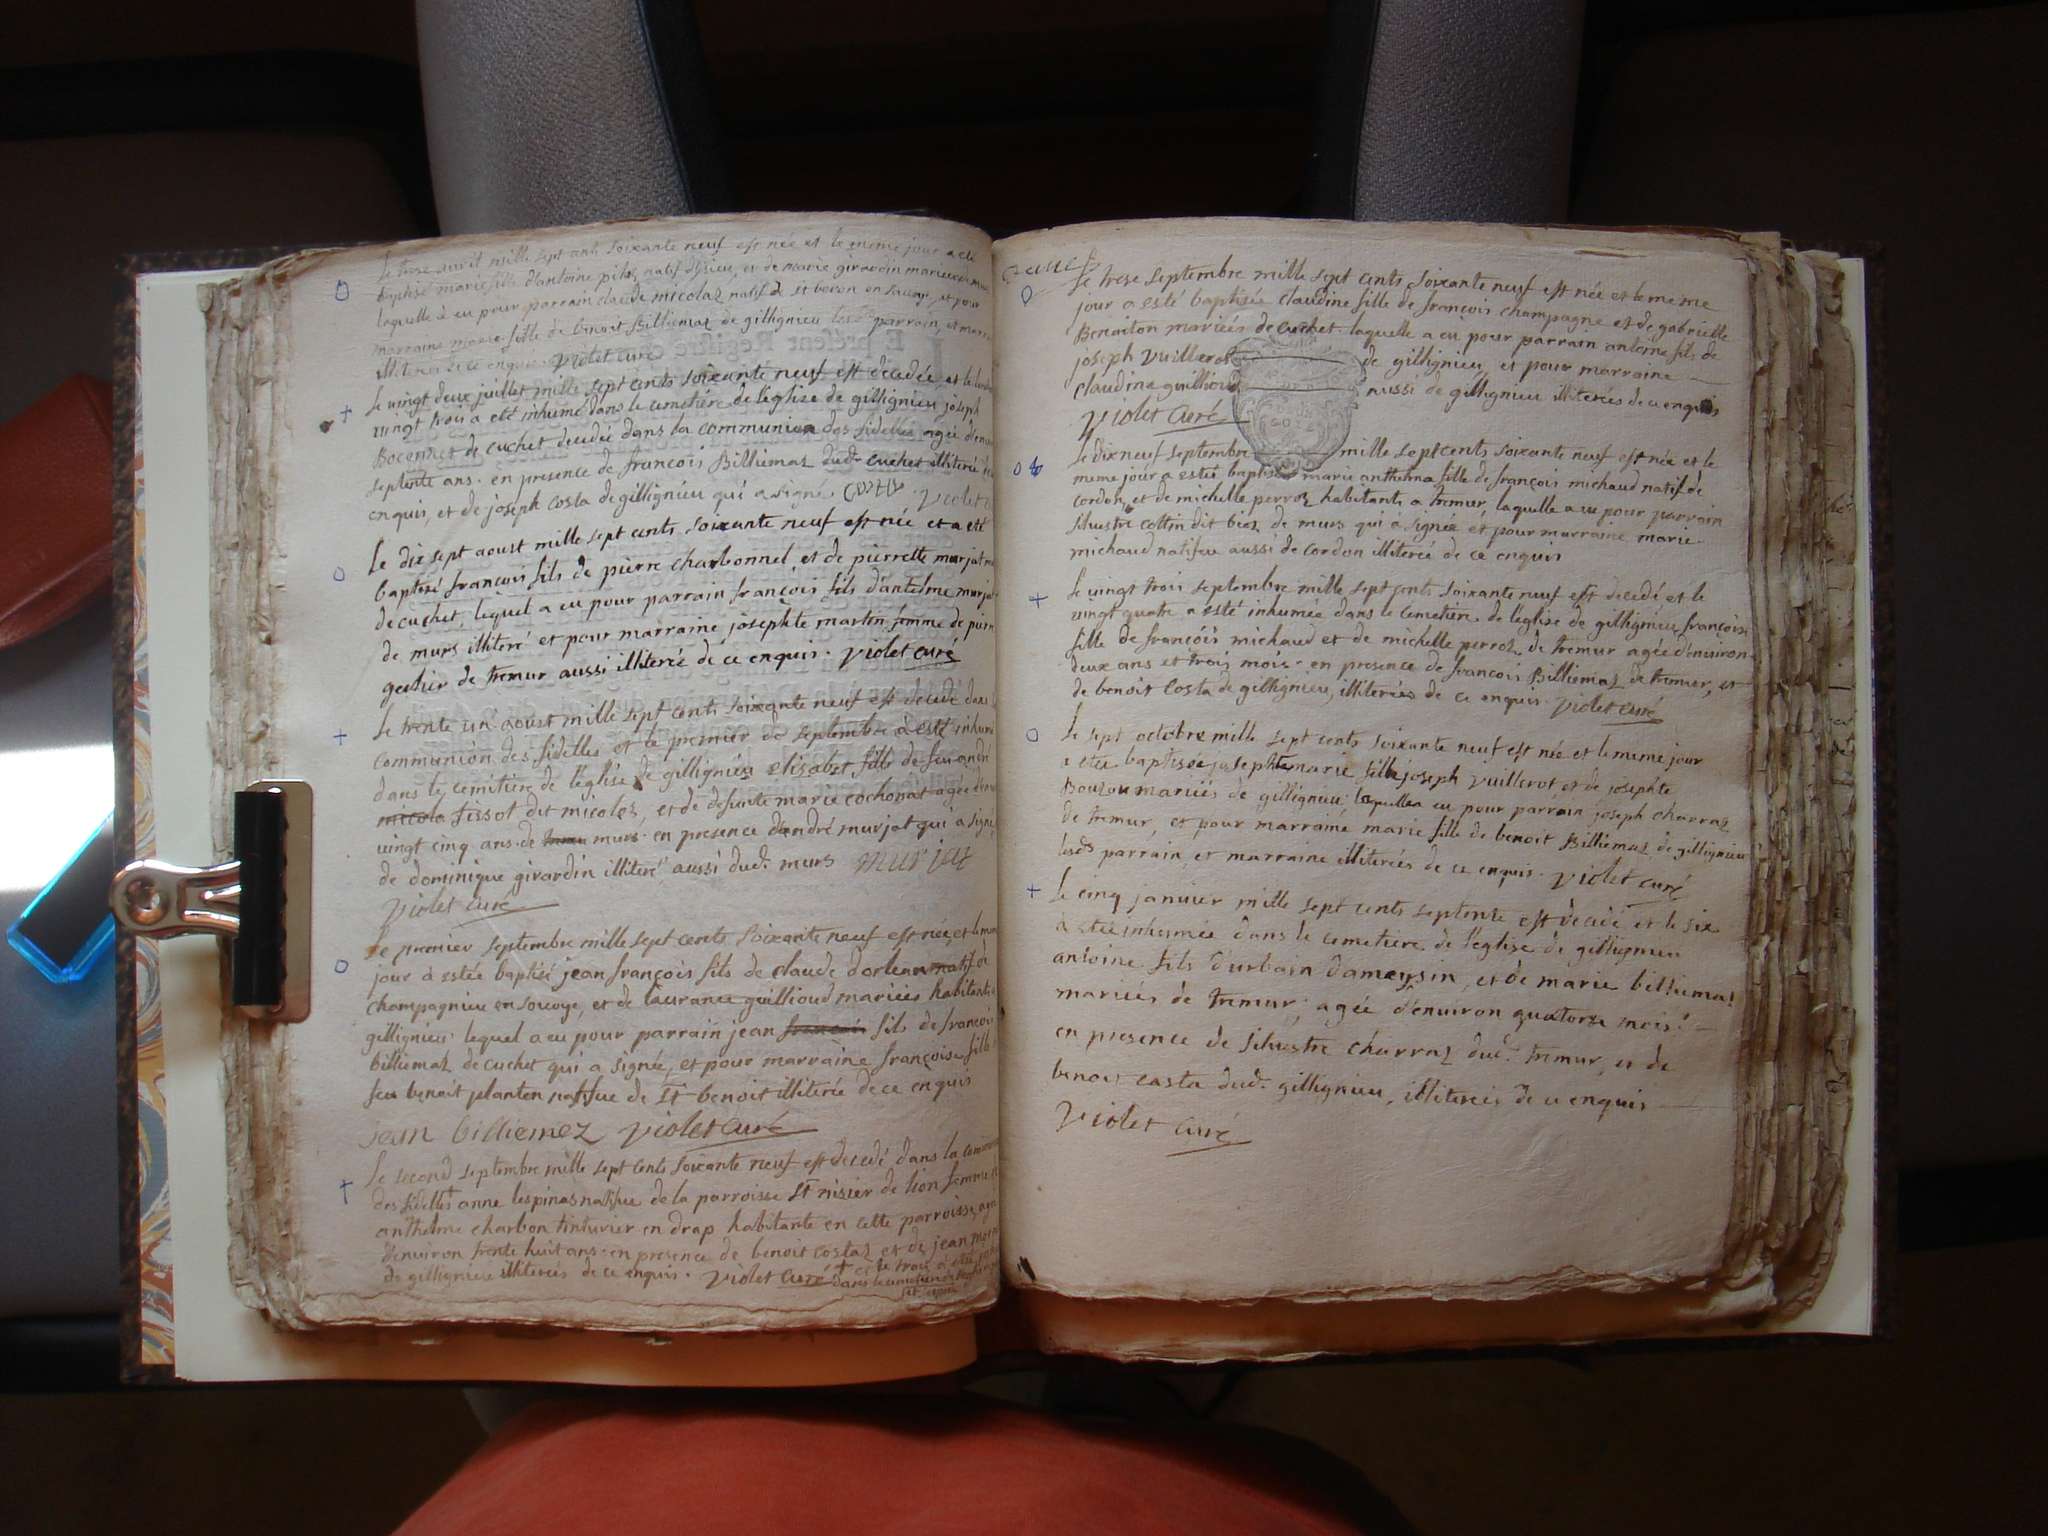 mille sept cents soixante neuf est née et le meme jour a été
baptisé marie fille d'antoine natif et de marie girardin mariés
laquelle a eu pour parrain claude micolas natif de st beron en savoye, et pour
marraine marie fille de benoit Billiemaz de gillignieu parrain, et
illiterés de ce enquis. violet curé
+ Le vingt deux juillet mille sept cents soixante neuf est decedée et le
vingt trois a eté inhumé dans le cemetiére de l'église de gillignieu joseph
de cuchet decedée dans la communion des fidelles agée
septente ans. en presence de françois Billiemaz dud. cuchet illiteré
enquis, et de joseph costa de gillignieu qui a signé violet
o Le dix sept aoust mille sept cents soixante neuf est née et a eté
baptisé françois fils de pierre charbonnel, et de pierrette murjat
de cuchet, lequel a eu pour parrain françois fils d'antelme
de murs illiteré et pour marraine josephte martin femme de
de tremur aussi illiterée de ce enquis. violet curé
+ Le trente un aoust mille sept cents soixante neuf est decedé dans
communion des fidelles et le premier de septembre à esté inhumé
dans le cemitiére de l'église de gillignieu elizabet fille de feu andré
micola tissot dit micolez, et de defunte marie cochonat agée
vingt cinq ans de murs. en presence d'andré murjat qui à signé
de dominique girardin illiteré aussi dud. murs murjat
violet curé
o Le premier septembre mille sept cents soixante neuf est née, et le
jour à estée baptisé jean françois fils de claude dorlean natif
champagnieu en savoye, et de laurance guillioud mariées habitants
gillignieu lequel a eu pour parrain jean françois fils de françois
billiemaz de cuchet qui a signée, et pour marraine françoise fille
feu benoit planten natifue de st benoit illiterée de ce enquis
jean billiemez violet curé
+ Le second septembre mille sept cents soixante neuf est decedé dans la
des fidelles anne lespinas natifue de la parroisse st nisier de lion femme
anthelme charbon tinturier en drap habitante en cette parroisse,
d'enuiron trente huit ans. en presence de benoit costaz et de jean
de gillignieu illiterés de ce enquis. violet curé + et le trois à esté
dans le cemetiére
o Le treze septembre mille sept cents soixante neuf est née et le meme
jour a esté baptisée claudine fille de françois champagne et de gabrielle
Benaiton mariées de cuchet laquelle a eu pour parrain antoine fils de
joseph vuillerot de gillignieu, et pour marraine
claudine guillioud aussi de gillignieu illiterés de ce enquis
violet curé
o Le dixneuf septembre mille sept cents soixante neuf est née et le
meme jour a estée baptisé marie anthelma fille de françois michaud natif de
cordon, et de michelle perroz habitants a tremur, laquelle a eu pour parrain
siluestre cottin dit biez de murs qui a signée et pour marraine marie
michaud natifeu aussi de cordon illiterée de ce enquis
+ Le vingt trois septembre mille sept cents soixante neuf est decedé et le
vingt quatre a esté inhumée dans le cemetiére de l'église de gillignieu françoise
fille de françois michaud et de michelle perroz, de tremur agée d'enuiron
deux ans et trois mois. en presence de françois Billiemaz de tremur, et
de benoit costa de gillignieu, illiterés de ce enquis. violet curé
o Le sept octobre mille sept cents soixante neuf est née et le meme jour
a estée baptisée josephte marie fille joseph vuillerot et de josephte
Bouzou mariées de gillignieu; laquelle a eu pour parrain joseph charraz
de tremur, et pour marraine marie fille de benoit Billiemaz de gillignieu
lesds parrain et marraine illiterés de ce enquis. violet curé
+ Le cinq januier mille sept cents septente est decedé et le six
à estée inhumée dans le cemetiére de l'église de gillignieu
antoine fils d'urbain dameysin, et de marie billiemaz
mariées de tremur, agée d'enuiron quatorze mois.
en presence de siluestre charraz dud. tremur, et de
benoit casta dud. gillignieu, illiterés de ce enquis
violet curé